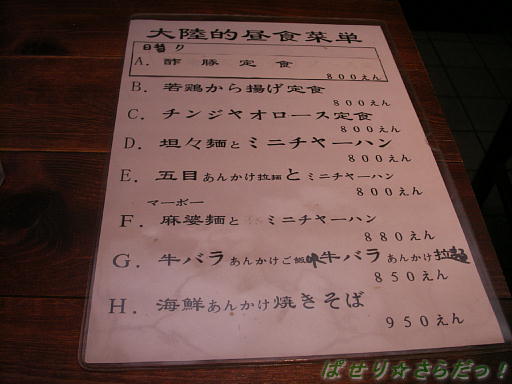 大陸的昼食菜単
日替り
A. 酢豚定食
800えん
B. 若鶏から揚げ定食
800えん
C. チンジャオロース定食
800えん
D. 坦々麺とミニチャーハン
800えん
E. 五目あんかけ拉麺とミニチャーハン
800えん
マーボー
F. 麻婆麺とミニチャーハン
880えん
G. 牛バラあんかけご飯 牛バラあんかけ拉麺
850えん
H. 海鮮あんかけ焼きそば
950えん
ぱせり☆さらだっ!